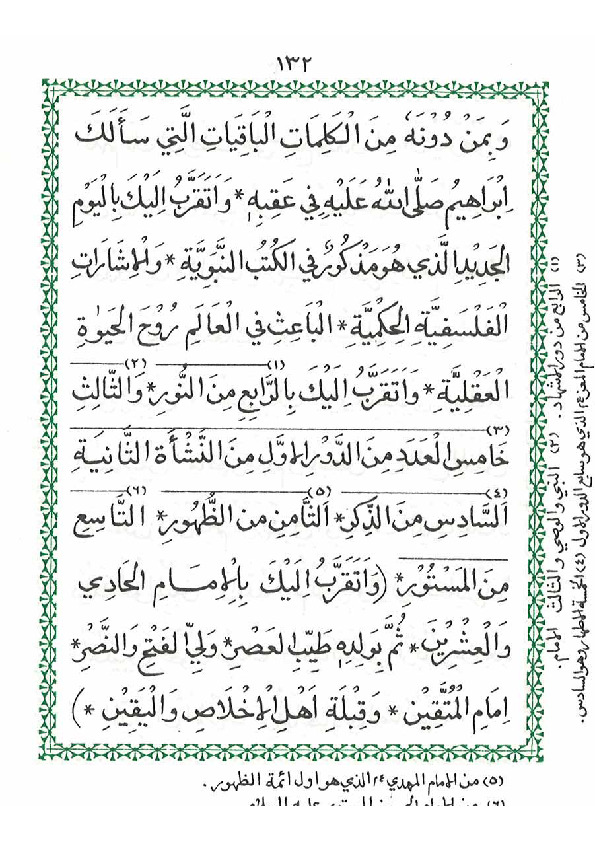 ١٣٢
وَبِمَنْ دُوْنَهٗ مِنَ الْكَلِمَاتِ الْبَاقِيَاتِ الَّتِيْ سَأَلَكَ
اِبْرَاهِيْمُ صَلَّى اللهُ عَلَيْهِ فِيْ عَقِبِهٖ * وَاَتَقَرَّبُ اِلَيْكَ بِالْيَوْمِ
الْجَدِيْدِ الَّذِيْ هُوَ مَذْكُوْرٌ فِي الْكُتُبِ النَّبَوِيَّةِ * وَالْاِشَارَاتِ
الْفَلْسَفِيَّةِ الْحِكْمِيَّةِ * الْبَاعِثِ فِي الْعَالَمِ رُوْحَ الْحَيٰوةِ
الْعَقْلِيَّةِ * وَاَتَقَرَّبُ اِلَيْكَ (١) بِالرَّابِعِ مِنَ النُّوْرِ * (٢) وَالثَّالِثِ
(٣) خَامِسِ الْعَدَدِ مِنَ الدَّوْرِ الْاَوَّلِ مِنَ النَّشْأَةِ الثَّانِيَةِ
(٤) اَلسَّادِسِ مِنَ الذِّكْرِ * (٥) اَلثَّامِنِ مِنَ الظُّهُوْرِ * (٦) التَّاسِعِ
مِنَ الْمَسْتُوْرِ * (وَاَتَقَرَّبُ اِلَيْكَ بِالْاِمَامِ الْحَادِيْ
وَالْعِشْرِيْنَ * ثُمَّ بِوَلَدِهٖ طَيِّبِ الْعَصْرِ * وَلِيِّ الْفَتْحِ وَالنَّصْرِ *
اِمَامِ الْمُتَّقِيْنَ * وَقِبْلَةِ اَهْلِ الْاِخْلَاصِ وَالْيَقِيْنِ *)
(١) الرابع من دور الاشهاد. (٢) النبي والوصي والثالث الامام.
(٣) الخامس من الامام المعز ع م الذي هو سابع الدور الاول (٤) الخمسة الاطهار وهو السادس.
(٥) من الامام المهدي ع م الذي هو اول ائمة الظهور.
(٦)